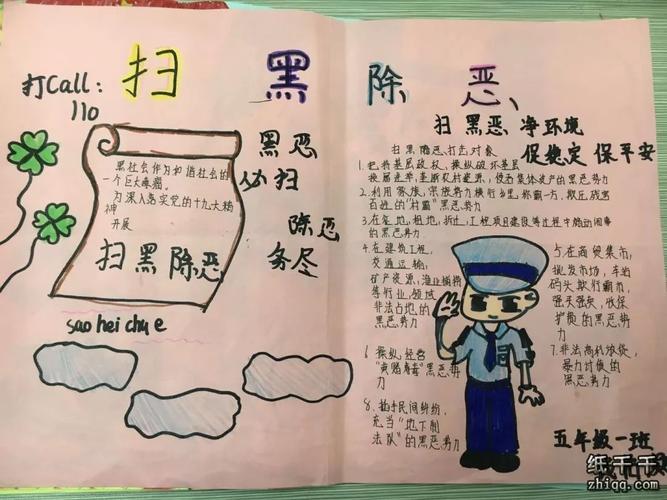 扫 黑 除 恶、
打Call：
110
黑社会作为和谐社会的
一个巨大毒瘤。
为深入落实党的十九大精
神
开展
扫黑除恶
sao hei chu e
黑恶
必扫
除恶
务尽
扫黑恶 净环境
促稳定 保平安
扫黑除恶打击对象
1.把持基层政权、操纵破坏基层
换届选举、垄断农村资源、侵吞集体资产的黑恶势力
2.利用家族、宗族势力横行乡里、称霸一方、欺压残害
百姓的“村霸”黑恶势力
3.在征地、租地、拆迁、工程项目建设等过程中煽动闹事
的黑恶势力
4.在建筑工程、
交通运输、
矿产资源、渔业捕捞
等行业、领域
非法占地的
黑恶势力
5.在商贸集市、
批发市场、车站
码头欺行霸市、
强买强卖、收保
护费的黑恶势
力
6.操纵、经营
“黄赌毒”黑恶势
力
7.非法高利放贷、
暴力讨债的
黑恶势力
8.插手民间纠纷，
充当“地下执
法队”的黑恶势力
五年级一班
纸千千
zhiqq.com